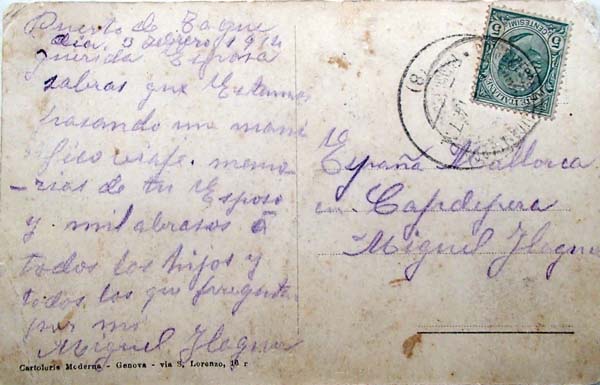 Puerto de
dia 3 Febrero 1912
querida Esposa
sabras que Estamos
pasando un mani
fico viaje. memo-
rias de tu Esposo
y mil abrasos á
todos los hijos y
todos los que pregunta
por mi
Miguel Flaquer
Cartoleria Moderna - Genova - via S. Lorenzo, 16 r
5 5
CENTESIMI
(8)
España Mallorca
en Capdepera
Miguel Flaquer